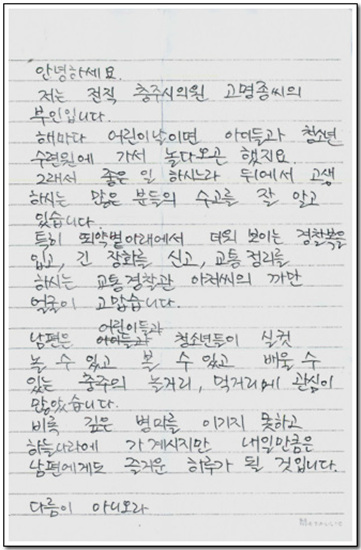 안녕하세요.
저는 전직 충주시의원 고명종씨의
부인입니다.
해마다 어린이날이면 아이들과 청소년
수련원에 가서 놀다오곤 했지요.
그래서 좋은 일 하시느라 뒤에서 고생
하시는 많은 분들의 수고를 잘 알고
있습니다.
특히 띄약볕아래에서 더워 보이는 경찰복을
입고, 긴 장화를 신고, 교통정리를
하시는 교통경찰관 아저씨의 까만
얼굴이 고맙습니다.
어린이들과
남편은 아이들과 청소년들이 실컷
놀 수 있고 볼 수 있고 배울 수
있는 충주의 놀거리, 먹거리에 관심이
많았습니다.
비록 깊은 병마를 이기지 못하고
하늘나라에 가 계시지만 내일만큼은
남편에게도 즐거운 하루가 될 것입니다.
다름이 아니오라